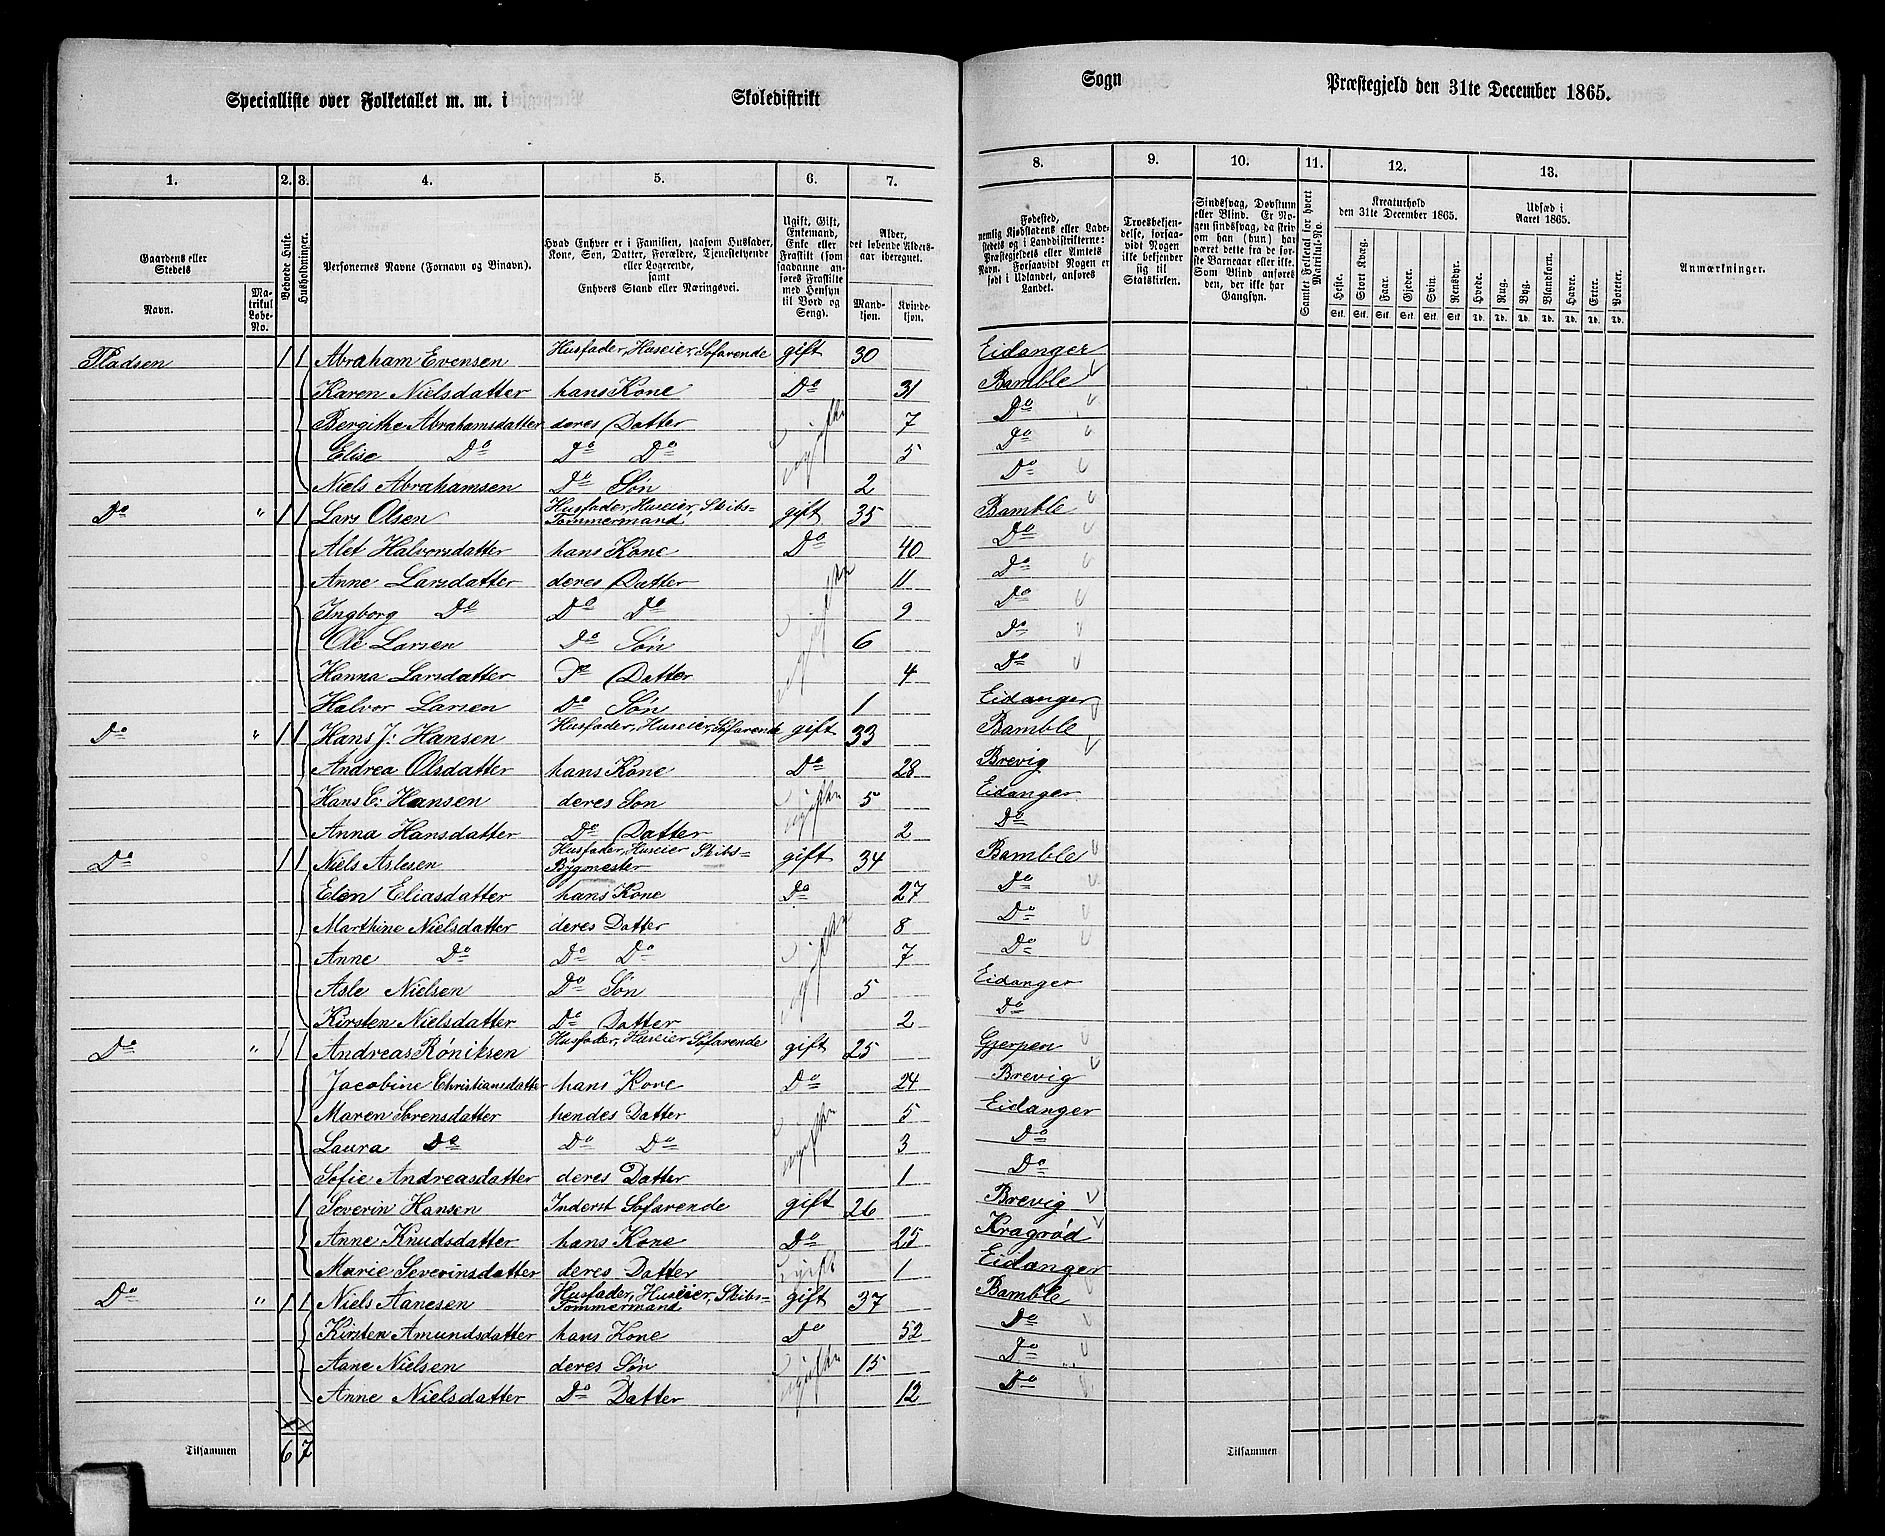 Specialliste over Folketallet m. m. i Skoledistrikt
Sogn Præstegjeld den 31te December 1865.
1. 2. 3. 4. 5. 6. 7. 8. 9. 10. 11. 12. 13.
Gaardens eller Stedets
Navn.
Matrikul Løbe-No.
Beboede Huse.
Husholdninger.
Personernes Navne (Fornavn og Binavn).
Hvad Enhver er i Familien, saasom Husfader,
Kone, Søn, Datter, Forældre, Tjenestetyende
eller Logerende,
samt
Enhvers Stand eller Næringsvei.
Ugift, Gift,
Enkemand,
Enke eller
Fraskilt (som
saadanne an-
føres Fraskilte
med Hensyn
til Bord og
Seng).
Alder,
det løbende Alders-
aar iberegnet.
Mand-kjøn.
Kvinde-kjøn.
Fødested,
nemlig Kjøbstadens eller Lade-
stedets og i Landdistrikterne:
Præstegjeldets eller Amtets
Navn. Forsaavidt Nogen er
født i Udlandet, anføres
Landet.
Troesbekjen-
delse, forsaa-
vidt Nogen
ikke bekjender
sig til
Statskirken.
Sindssvag, Døvstum
eller Blind. Er No-
gen sindssvag, da skriv
om han (hun) har
været dette fra de før-
ste Barneaar eller ikke.
Som Blind anføres
den, der ikke har
Gangsyn.
Samlet Folketal for hvert Matrikul-No.
Kreaturhold
den 31te December 1865.
Heste. Stort Kvæg. Faar. Gjeder. Svin. Rensdyr.
Stk. Stk. Stk. Stk. Stk. Stk.
Udsæd i
Aaret 1865.
Hvede. Rug. Byg. Blandkorn. Havre. Erter. Poteter.
Td. Td. Td. Td. Td. Td. Td.
Anmærkninger.
Pladsen 1 1 Abraham Evensen Husfader, Huseier, Søfarende gift 30 Eidanger
Karen Nielsdatter hans Kone Do 31 Bamble
Bergithe Abrahamsdatter deres Datter ugift 7 Do
Elise Do Do Do 5 Do
Niels Abrahamsen Do Søn 2 Do
Do " 1 1 Lars Olsen Husfader, Huseier, Skibs-Tømmermand gift 35 Bamble
Alet Halvorsdatter hans Kone Do 40 Do
Anne Larsdatter deres Datter ugift 11 Do
Ingborg Do Do Do 9 Do
Ole Larsen Do Søn 6 Do
Hanna Larsdatter Do Datter 4 Do
Halvor Larsen Do Søn 1 Eidanger
Do " 1 1 Hans J: Hansen Husfader, Huseier, Søfarende gift 33 Bamble
Andrea Olsdatter hans Kone Do 28 Brevig
Hans C: Hansen deres Søn ugift 5 Eidanger
Anna Hansdatter Do Datter 2 Do
Do 1 1 Niels Aslesen Husfader, Huseier Skibs-Bygmester gift 34 Bamble
Elen Eliasdatter hans Kone Do 27 Do
Marthine Nielsdatter deres Datter ugift 8 Do
Anne Do Do Do 7 Do
Asle Nielsen Do Søn 5 Eidanger
Kirsten Nielsdatter Do Datter 2 Do
Do " 1 1 Andreas Røniksen Husfader, Huseier Søfarende gift 25 Gjerpen
Jacobine Christiansdatter hans Kone Do 24 Brevig
Maren Sørensdatter hendes Datter ugift 5 Eidanger
Laura Do Do Do 3 Do
Sofie Andreasdatter deres Datter 1 Do
1 Severin Hansen Inderst Søfarende gift 26 Brevig
Anne Knudsdatter hans Kone Do 25 Kragrød
Marie Severinsdatter deres Datter ugift 1 Eidanger
Do " 1 1 Niels Aanesen Husfader, Huseier, Skibs-Tømmermand gift 37 Bamble
Kirsten Amundsdatter hans Kone Do 52 Do
Aane Nielsen deres Søn ugift 15 Do
Anne Nielsdatter Do Datter 12 Do
Tilsammen 6 7 Tilsammen